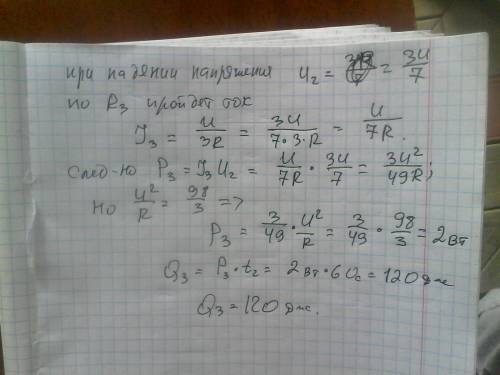 при падении напряжения U₂ = = 3U/7
по R₃ пройдет ток
I₃ = U/3R = 3U/7·3·R = U/7R.
след-но P₃ = I₃U₂ = U/7R · 3U/7 = 3U²/49R;
но U²/R = 98/3 =>
P₃ = 3/49 · U²/R = 3/49 · 98/3 = 2Вт
Q₃ = P₃·t₂ = 2Вт·60с = 120 Дж
Q₃ = 120 Дж.